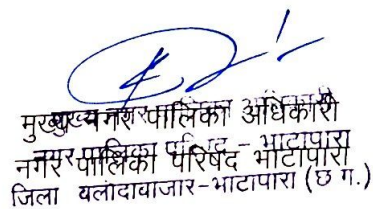 मुख्य नगर पालिका अधिकारी
नगर पालिका परिषद भाटापारा
जिला बलौदाबाजार-भाटापारा (छ ग.)